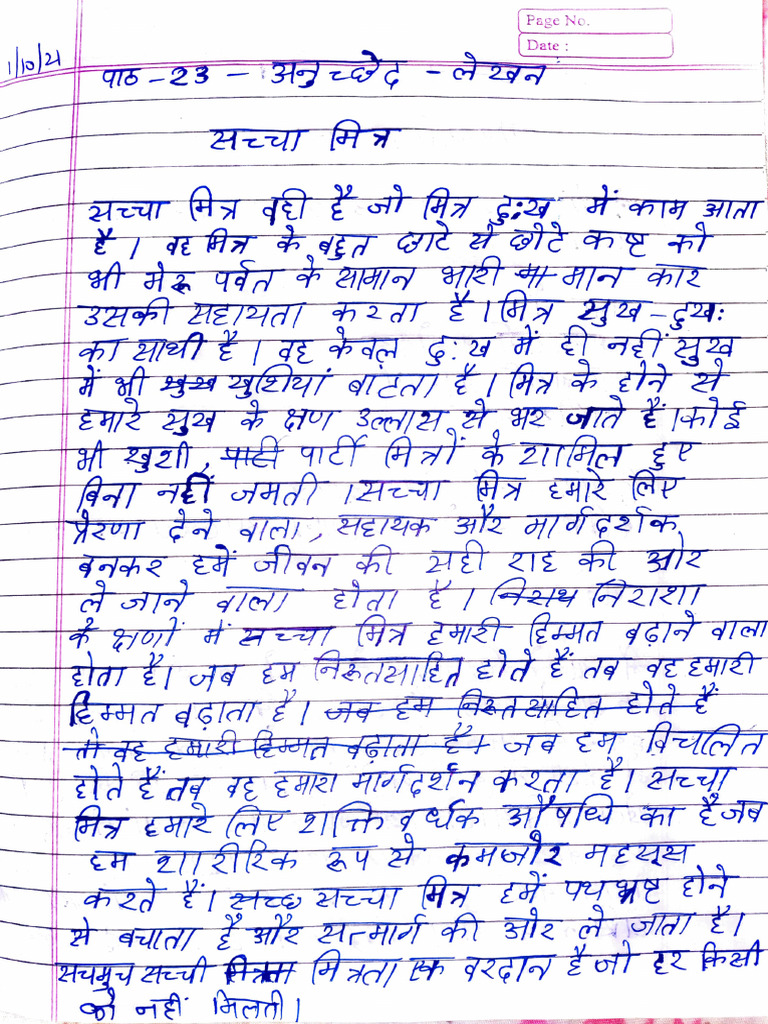 Page No.
Date :
1/10/21
पाठ - 23 - अनुच्छेद - लेखन
सच्चा मित्र
सच्चा मित्र वही है जो मित्र दुःख में काम आता
है। वह मित्र के बहुत छाटे से छोटे कष्ट को
भी मेरू पर्वत के सामान भारी मान कार
उसकी सहायता करता है। मित्र सुख - दुखः
का साथी है। वह केवल दुःख में ही नहीं सुख
में भी खुशियां बाटता है। मित्र के होने से
हमारे सुख के क्षण उल्लास से भर जाते हैं। कोई
भी खुशी, पार्टी मित्रों के शामिल हुए
बिना नहीं जमती। सच्चा मित्र हमारे लिए
प्रेरणा देने वाला, सहायक और मार्गदर्शक
बनकर हमें जीवन की सही राह की ओर
ले जाने वाला होता है। निराशा
के क्षणों में सच्चा मित्र हमारी हिम्मत बढ़ाने वाला
होता है। जब हम निरूतसाहित होते हैं तब वह हमारी
हिम्मत बढ़ाता है। जब हम निरूतसाहित होते हैं
तो वह हमारी हिम्मत बढ़ाता है। जब हम विचलित
होते हैं तब वह हमारा मार्गदर्शन करता है। सच्चा
मित्र हमारे लिए शक्ति वर्धक औषधि का है जब
हम शारीरिक रूप से कमजोर महसूस
करते हैं। सच्छ सच्चा मित्र हमें पथ भ्रष्ट होने
से बचाता है और सत्मार्ग की ओर ले जाता है।
सचमुच सच्ची मित्रता एक वरदान है जो हर किसी
को नहीं मिलती।